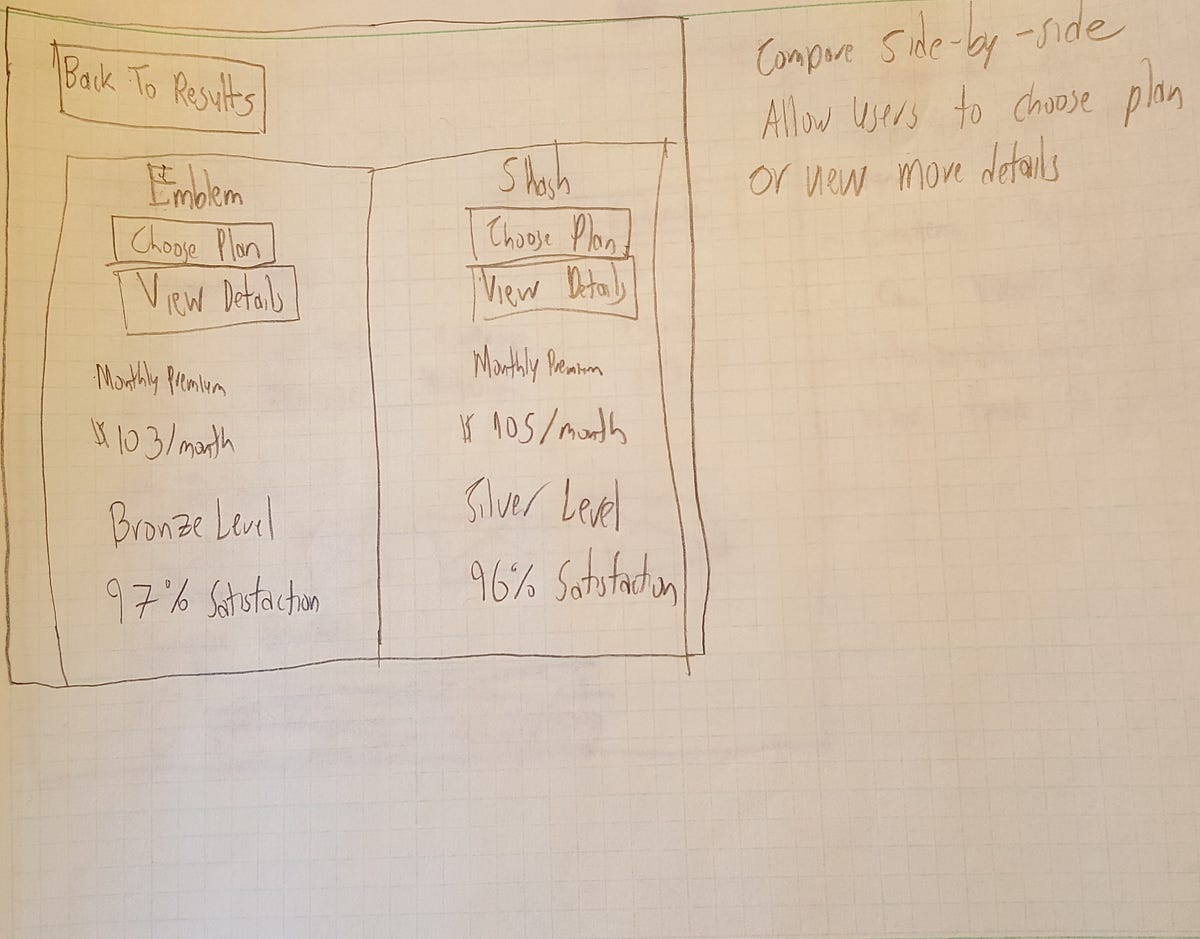 Back To Results
Emblem
Choose Plan
View Details
Monthly Premium
$103/month
Bronze Level
97% Satisfaction
Choose Plan
View Details
Monthly Premium
$105/month
Silver Level
96% Satisfaction
Compare Side-by-side
Allow users to choose plan
or view more details